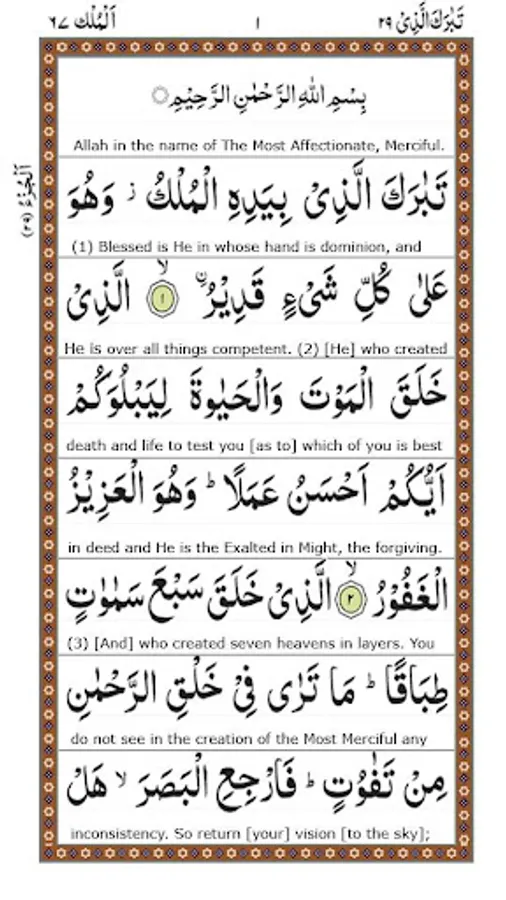 تَبٰرَكَ الَّذِیْ ٢٩ ١ اَلْمُلْك ٦٧
اَلْجُزْءُ (٢٩)
بِسْمِ اللّٰهِ الرَّحْمٰنِ الرَّحِيْمِ
Allah in the name of The Most Affectionate, Merciful.
تَبٰرَكَ الَّذِیْ بِيَدِهِ الْمُلْكُ ز وَهُوَ
(1) Blessed is He in whose hand is dominion, and
عَلٰى كُلِّ شَیْءٍ قَدِيْرُ ۙ ١ الَّذِیْ
He is over all things competent. (2) [He] who created
خَلَقَ الْمَوْتَ وَالْحَيٰوةَ لِيَبْلُوَكُمْ
death and life to test you [as to] which of you is best
اَيُّكُمْ اَحْسَنُ عَمَلًا ؕ وَهُوَ الْعَزِيْزُ
in deed and He is the Exalted in Might, the forgiving.
الْغَفُوْرُ ۙ ٢ الَّذِیْ خَلَقَ سَبْعَ سَمٰوٰتٍ
(3) [And] who created seven heavens in layers. You
طِبَاقًا ؕ مَا تَرٰى فِیْ خَلْقِ الرَّحْمٰنِ
do not see in the creation of the Most Merciful any
مِنْ تَفٰوُتٍ ؕ فَارْجِعِ الْبَصَرَ ۙ هَلْ
inconsistency. So return [your] vision [to the sky];